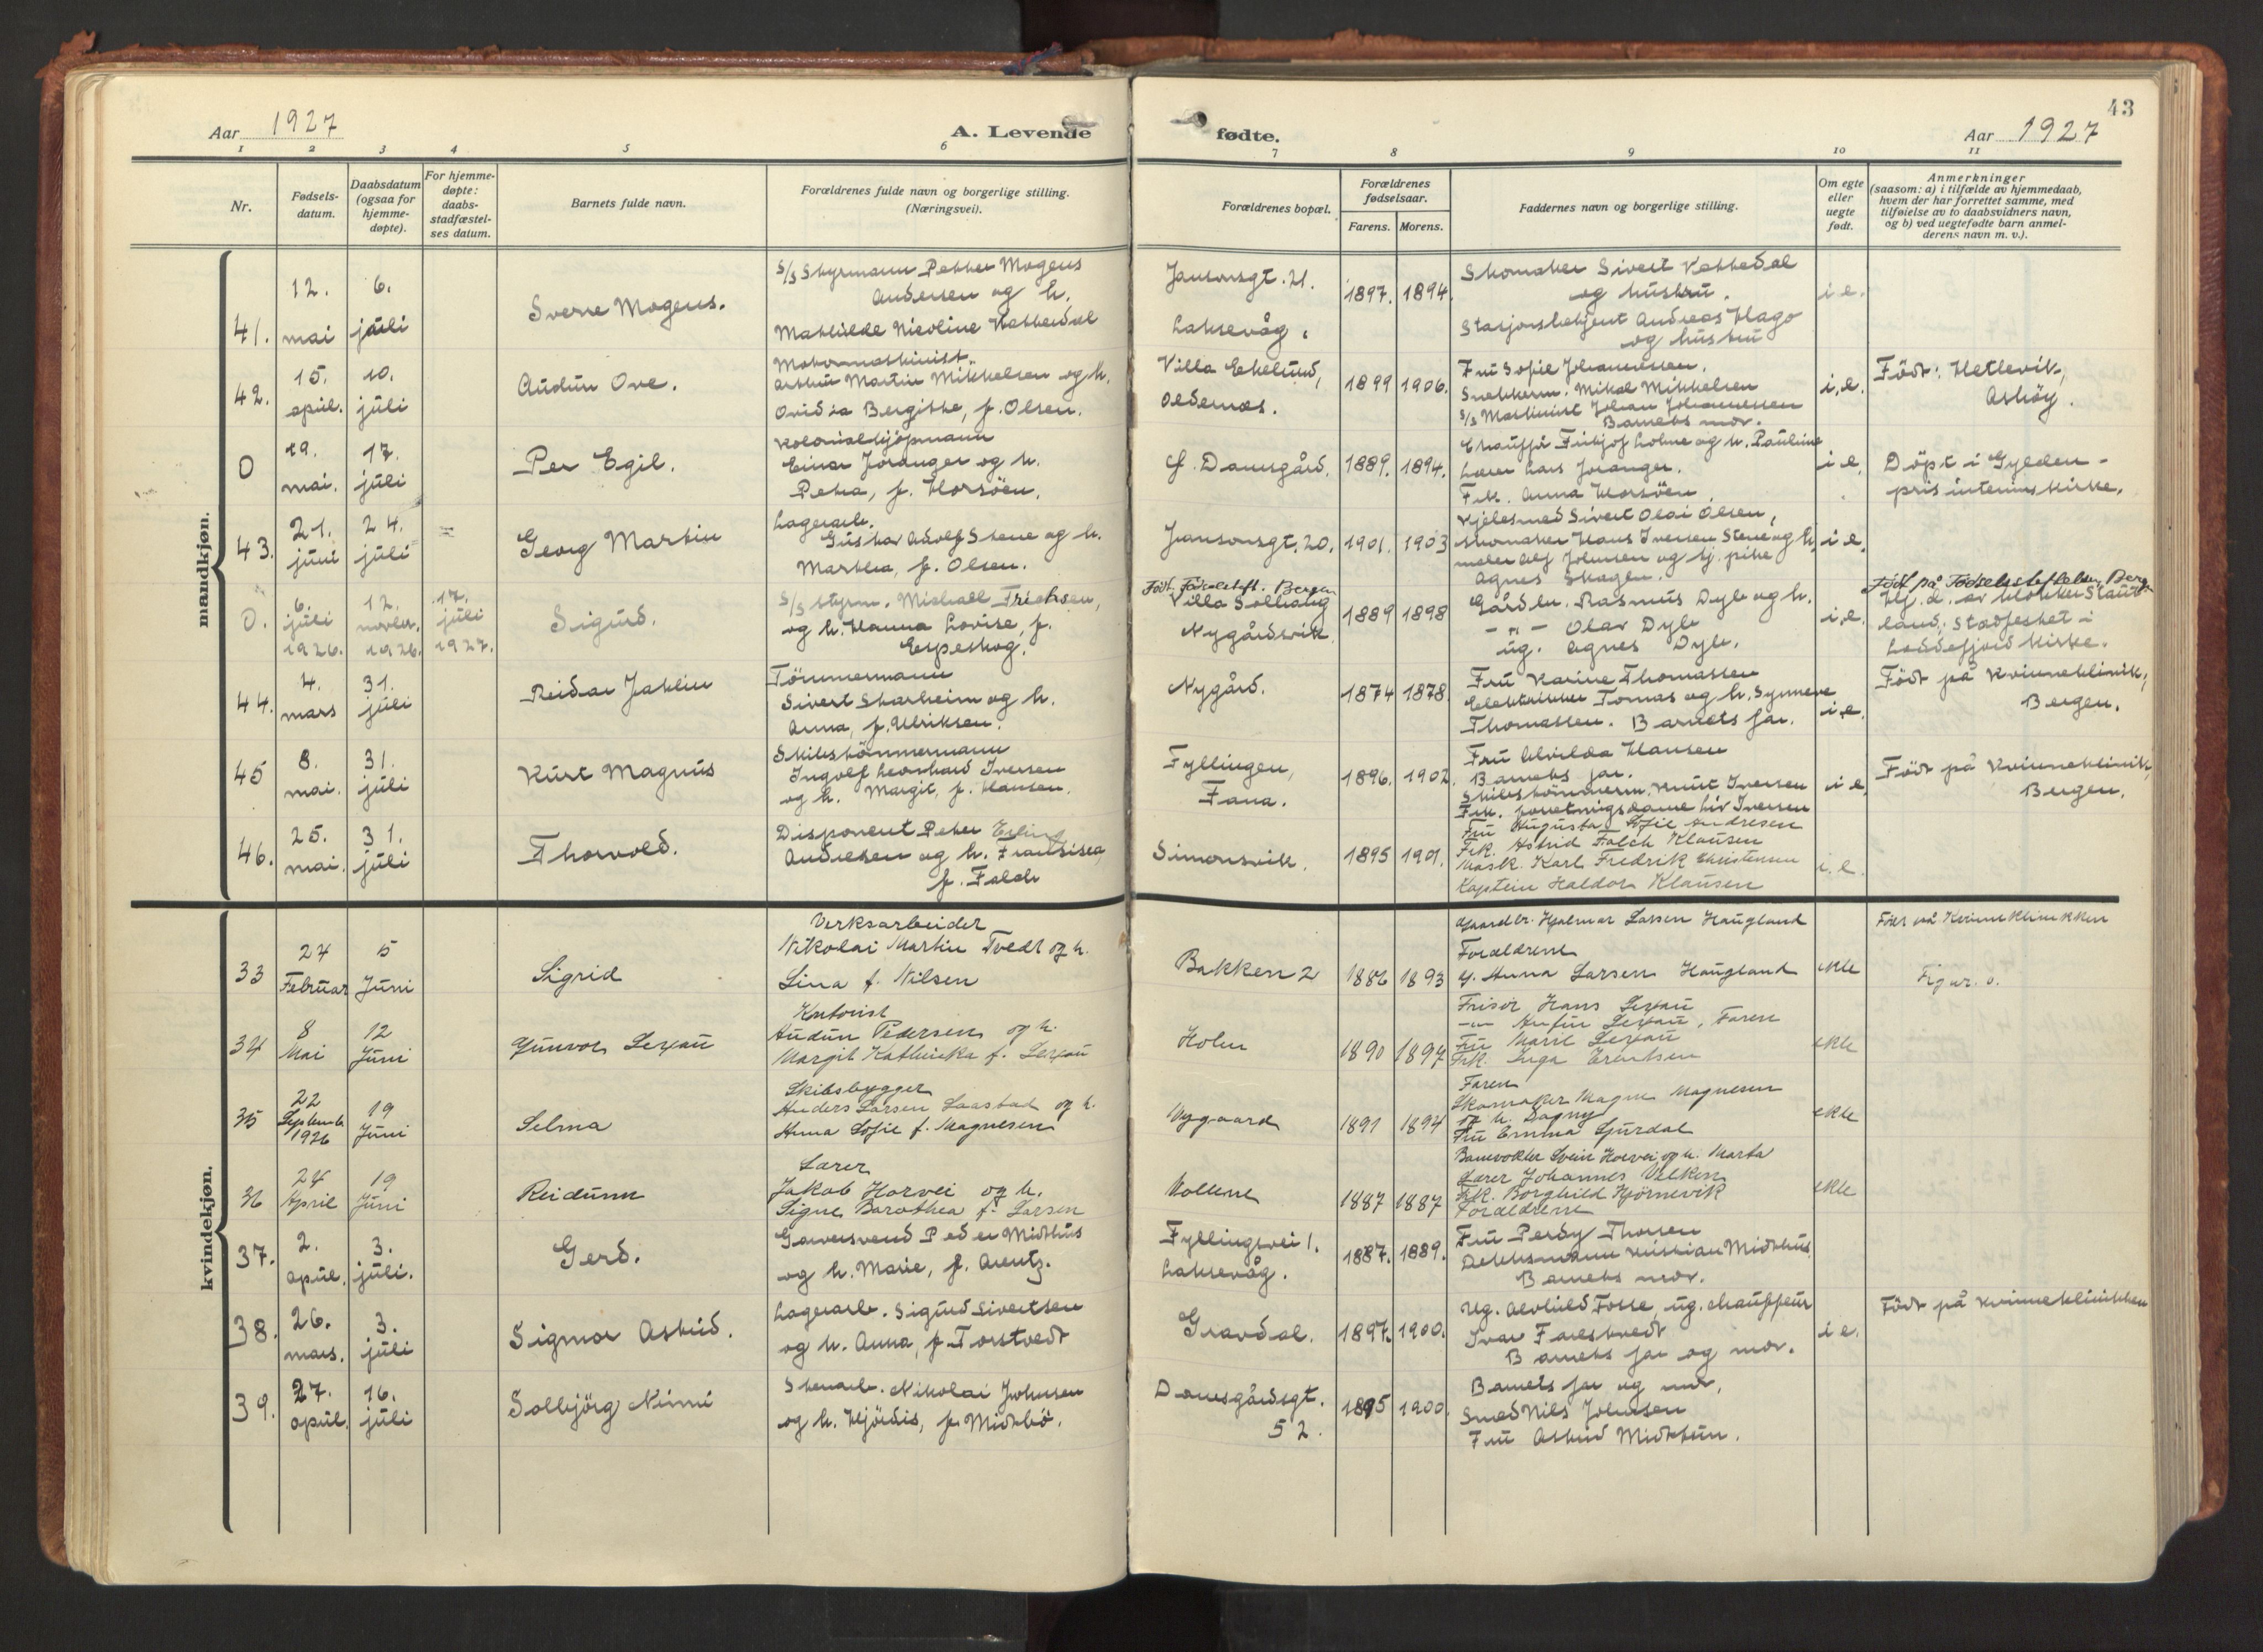 43
Aar 1927
A. Levende
fødte.
Aar 1927
1 2 3 4 5 6 7 8 9 10 11
Nr.
Fødsels-
datum.
Daabsdatum
(ogsaa for
hjemme-
døpte).
For hjemme-
døpte:
daabs-
stadfæstel-
ses datum.
Barnets fulde navn.
Forældrenes fulde navn og borgerlige stilling.
(Næringsvei).
Forældrenes bopæl.
Forældrenes
fødselsaar.
Farens. Morens.
Faddernes navn og borgerlige stilling.
Om egte
eller
uegte
født.
Anmerkninger
(saasom: a) i tilfælde av hjemmedaab,
hvem der har forrettet samme, med
tilføielse av to daabsvidners navn,
og b) ved uegtefødte barn anmel-
derens navn m. v.).
mandkjøn.
41.
12.
mai
6.
juli
Sverre Mogens.
s/s Styrmann Petter Mogens
Andersen og h.
Mathilde Nicoline Vattedal
Jansonsgt. 21.
Laksevåg.
1897. 1894.
Skomaker Sivert Vattedal
og hustru.
Stasjonsbetjent Andreas Hage
og hustru
i e.
42.
15.
april.
10.
juli
Audun Ove.
Motormaskinist
Arthur Martin Mikkelsen og h.
Ovidia Bergitte, f. Olsen.
Villa Ekelund,
1899 1906.
Fru Sofie Johannessen.
Snekkerm. Mikal Mikkelsen
s/s Maskinist Johan Johannessen
Barnets mor.
i, e.
Födt: Hetlevik,
Askøy.
0
19.
mai.
17.
juli
Per Egil.
Kolonialkjöpmann
Einar Joranger og h.
Petra, f. Horsöen.
Damsgård.
1889. 1894.
Chauffør Fritjof Lohne og h. Pauline
Lærer Lars Joranger.
Frk. Anna Horsöen.
i e.
Döpt i Gylden-
pris interimskirke.
43.
21.
juni
24.
juli
Georg Martin
Lagerarb.
Gustav Adolf Stene og h.
Marthea, f. Olsen.
Jansonsgt. 20.
1901. 1903
Kjelesmed Sivert Olai Olsen,
skomaker Hans Iversen Stene og h,
maler Alf Johnsen og hj. pike
Agnes Skagen.
i e.
0.
6.
juli
1926.
12.
novbr.
1926.
17.
juli
1927.
Sigurd.
s/s styrm. Michael Trichsen,
og h. Hanna Lovise, f.
Espeskog.
Födt. Födselsstift. Bergen
Villa Solhaug
Nygårdsvik.
1889 1898
Gårdbr. Rasmus Dyb og h.
- " - Olav Dyb
ug. Agnes Dyb.
i, e.
Födt på Födselsstiftelsen, Berg.
Hj. d. av klokker Staut-
land. Stadfestet i
Loddefjord kirke.
44.
4.
mars
31.
juli
Reidar Jaklin
Tömmermann
Sivert Skarheim og h.
Anna, f. Ulriksen.
Nygård.
1874 1878.
Fru Karine Thomassen
Elektriker Tomas og h. Synneve
Thomassen. Barnets far.
i, e.
Födt på Kvinneklinik,
Bergen.
45
8.
mai.
31.
juli
Kurt Magnus
Skibstömmermann
Ingolf Leonhard Iversen
og h. Margit, f. Hansen.
Fyllingen,
Fana.
1896. 1902.
Fru Alvilda Hansen
Barnets far.
Skibstömmerm. Knut Iversen
Frk. forretningsdame Liv Iversen
i e.
Födt på Kvinneklinik,
Bergen.
46.
25.
mai.
31.
juli
Thorvald.
Disponent Peter Erling
Andresen og h. Fransisca,
f. Falch
Simonsvik.
1895 1901.
Fru Augusta Sofie Andresen
Frk. Astrid Falch Klausen
Mask. Karl Fredrik Christensen
Kaptein Haldor Klausen
i. e.
kvindekjøn.
33
24
Februar
5
Juni
Sigrid
Verksarbeider
Nikolai Martin Tvedt og h.
Lina f. Nilsen
Bakken 2
1886 1893
Gaardbr. Hjalmar Larsen Haugland
Foreldrene
G. Anna Larsen Haugland
ekte
Født på Kvinneklinikken
34
8
Mai
12
Juni
Gunvor Lexau
Kontorist
Audun Pedersen og h.
Margit Kathinka f. Lexau
Holen
1890 1897
Frisör Hans Lexau
Lexau, Faren
Fru Marit Lexau
Frk. Inga Erentsen
ekte
35
22
Septemb.
1926
19
Juni
Selma
Skibsbygger
Anders Larsen Laastad og h.
Anna Sofie f. Magnesen
Nygaard
1891 1894
Faren
Skomaker Magne Magnesen
og h. Dagny
Fru Emma Gjurdal
ekte
36
24
April
19
Juni
Reidunn
Lærer
Jakob Horvei og h.
Signe Barothea f. Larsen
Mollene
1887 1887
Banevokter Svein Horvei og h. Marta
Lærer Johannes Velken
Frk. Borghild Hjörnevik
Foreldrene
ekte
37.
2.
april.
3.
juli.
Gerd.
Garversvend Peder Midthus
og h. Marie, f. Arentz.
Fyllingsvei 1.
Laksevåg.
1887. 1889.
Fru Perdy Thorsen
Dekksmann Kristian Midthus.
Barnets mor.
38.
26.
mars.
3.
juli
Sigmor Astrid.
Lagerarb. Sigurd Sivertsen
og h. Anna, f. Torstvedt
Gravdal.
1897. 1900.
Ug. Alvhild Fosse, ug. chauffeur
Ivar Farestvedt
Barnets far og mor.
i e.
Födt på Kvinneklinikken
39.
27.
april.
16.
juli
Solbjörg Nimi
Stenarb. Nikolai Johnsen
og h. Hjördis, f. Midtbö.
Damsgårdsgt.
52.
1895 1900.
Barnets far og mor,
Smed Nils Johnsen
Fru Astrid Midttun.